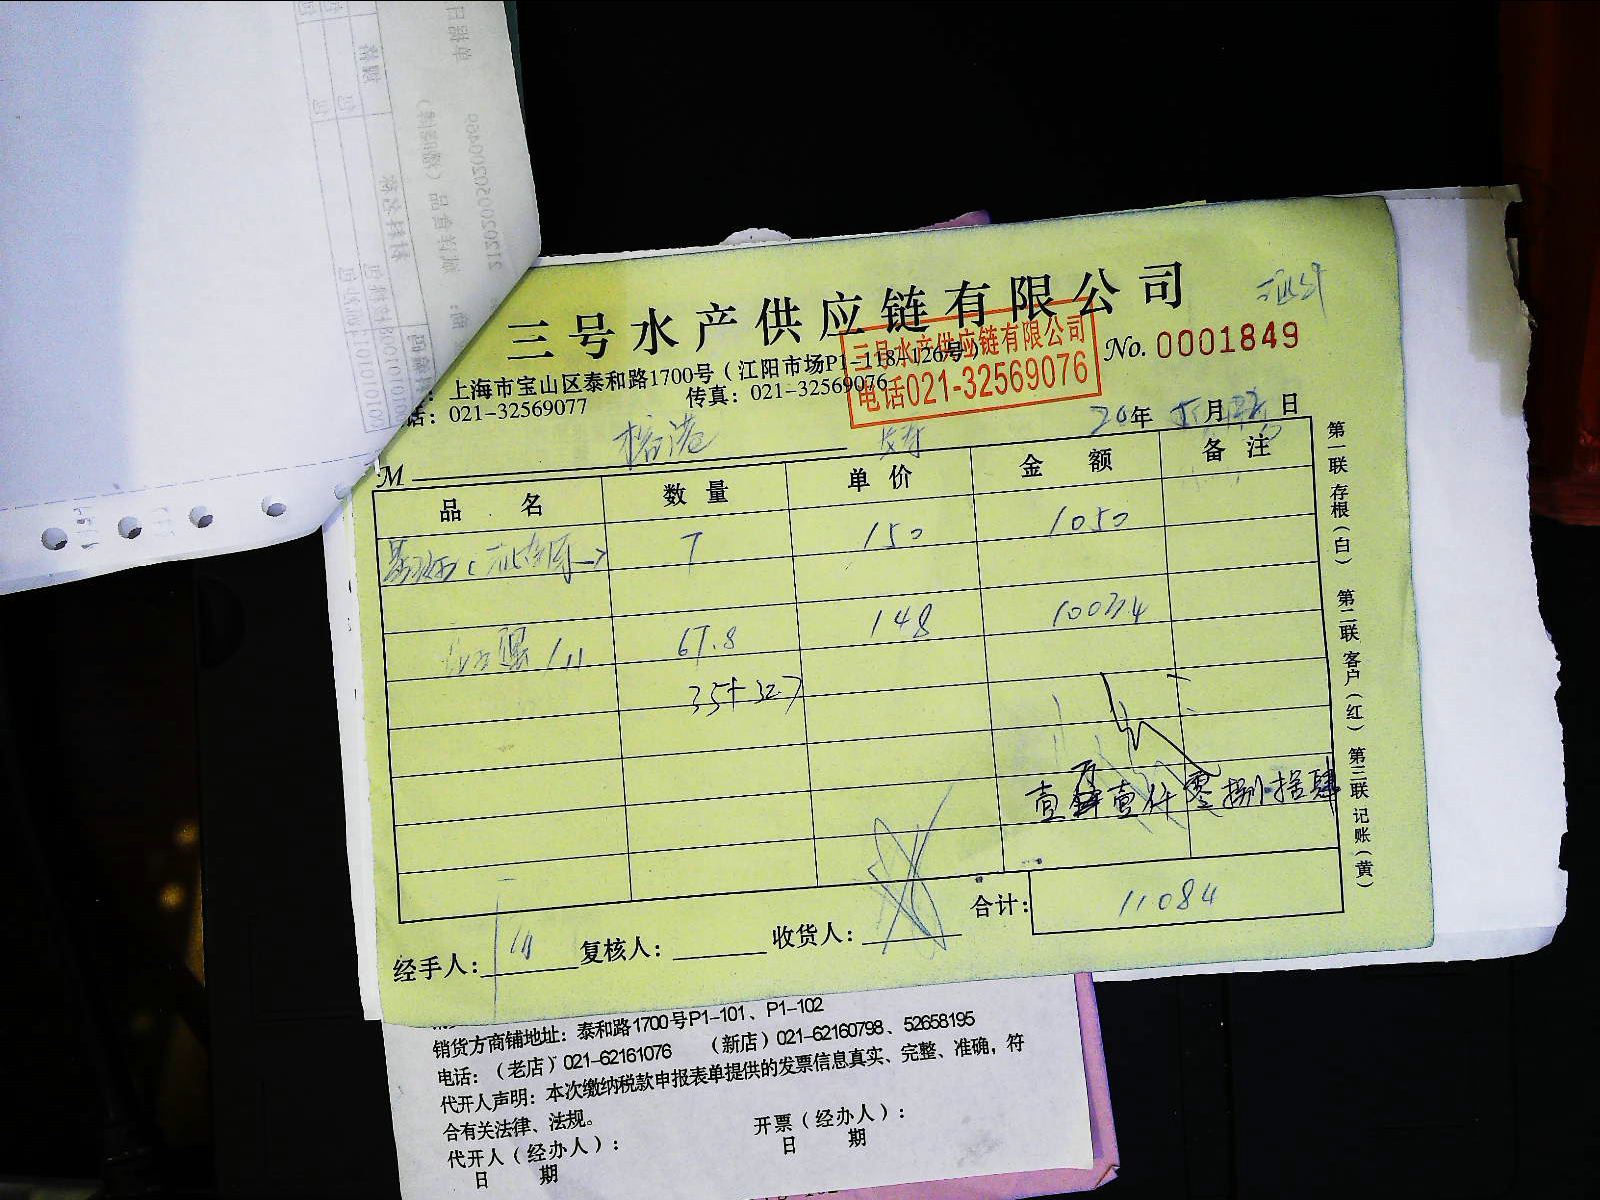 三号水产供应链有限公司
上海市宝山区泰和路1700号（江阳市场P1-118-126号）
话：021-32569077 传真：021-32569076
三号水产供应链有限公司
电话021-32569076
No. 0001849
20年 5月 日
M 榕港
品名 数量 单价 金额 备注
7 150 1050
67.8 148 10034
35+32.7
壹万壹仟零捌拾肆
合计：11084
经手人： 复核人： 收货人：
第一联存根（白） 第二联客户（红） 第三联记账（黄）
销货方商铺地址：泰和路1700号P1-101、P1-102
电话：（老店）021-62161076 （新店）021-62160798、52658195
代开人声明：本次缴纳税款申报表单提供的发票信息真实、完整、准确，符
合有关法律、法规。
代开人（经办人）： 开票（经办人）：
日 期 日 期